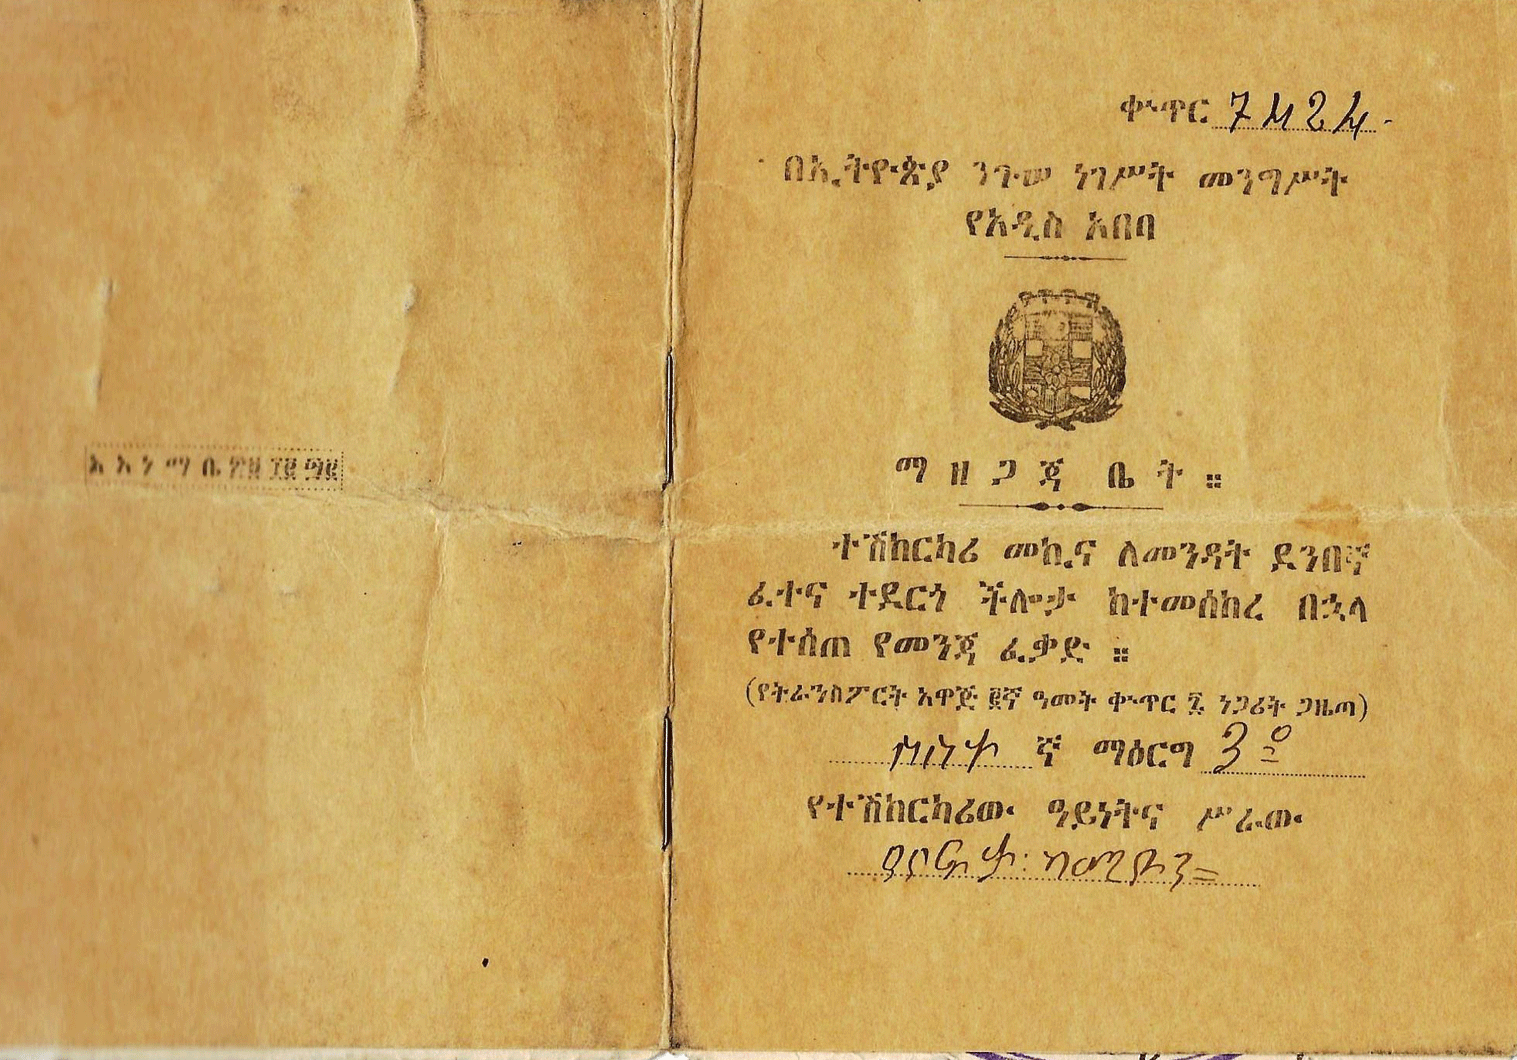 ቍጥር 7424.
በኢትዮጵያ ንጉሠ ነገሥት መንግሥት
የአዲስ አበባ
ማዘጋጃ ቤት ።
ተሽከርካሪ መኪና ለመንዳት ደንበኛ
ፈተና ተደርጎ ችሎታ ከተመሰከረ በኋላ
የተሰጠ የመንጃ ፈቃድ ።
(የትራንስፖርት አዋጅ ፪ኛ ዓመት ቍጥር ፯ ነጋሪት ጋዜጣ)
ሶስተኛ ማዕርግ 3º
የተሽከርካሪው ዓይነትና ሥራው